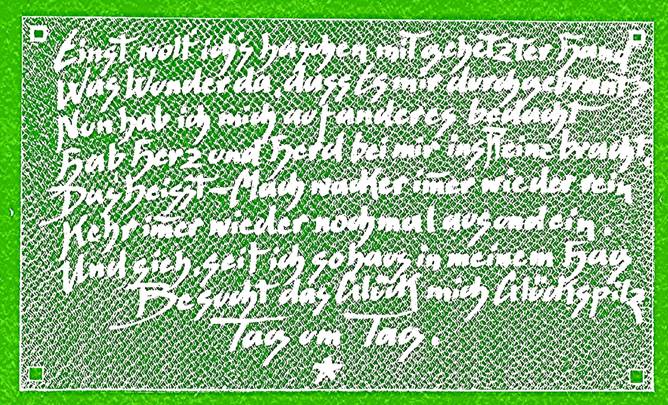 Einst wollt' ich's haschen mit gehetzter Hand
Was Wunder da, dass Es mir durchgebrannt?
Nun hab ich mich auf anderes bedacht
Hab Herz und Herd bei mir ins Reine bracht
Das heisst – Mach wacker imer wieder rein
Kehr imer wieder nochmal aus und ein.
Und sieh, seit ich so haus in meinem Haus
Besucht das Glück mich Glückspilz
Tag um Tag.